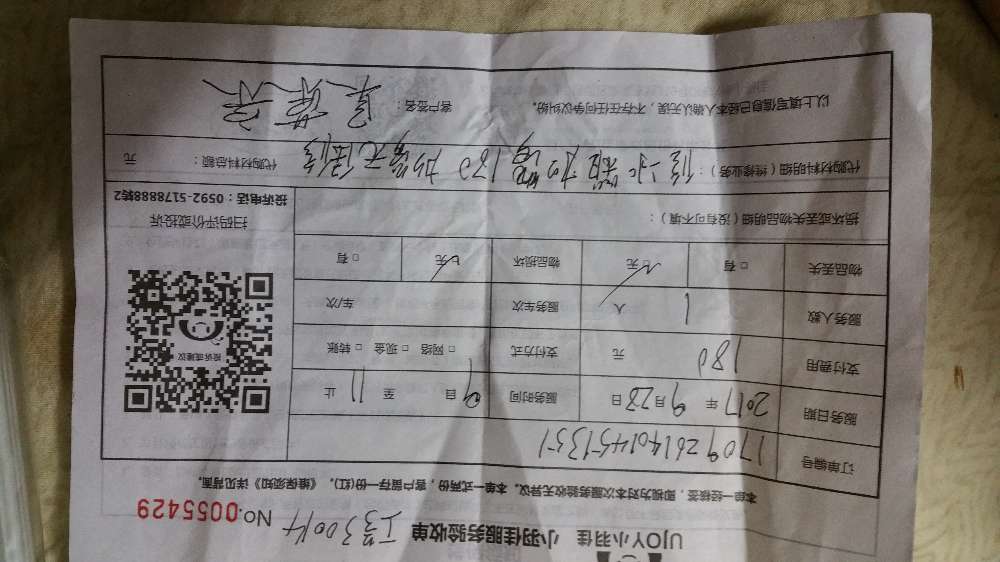 UJOY小羽佳 小羽佳服务验收单 工号3004 No.0055429
本单一经核签，即视为对本次服务验收无异议。本单一式两份，客户留存一份(红)，《维保须知》详见背面。
订单编号 17092614014513351
服务日期 2017 年 9 月 28 日 服务时间 9 自 至 11 止
支付费用 180 元 支付方式 □ 网络 □ 现金 □ 转账
服务人数 1 人 服务车次 车/次
物品丢失 □ 有 □ 无 物品损坏 □ 有 □ 无
损坏或丢失物品明细（没有可不填）：
投诉或建议
扫码评价或投诉
投诉电话：0592-5178888转2
代购材料明细（维修业务）： 180 代购材料总额： 元
以上填写信息已经本人确认无误，不存在任何争议纠纷。 客户签名：